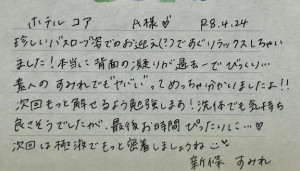 ホテル コア A様♡ R8.4.24
珍しいバスローブ姿でのお迎え(?)ですぐリラックスしちゃい
ました!本当に背面の凝りが過去一でびっくり…
素人の すみれでも"ヤバい"ってめっちゃ分かいましたよ!!
次回もっと解せるよう勉強します!洗体でも気持ち
良さそうでしたが、最後お時間ぴったりに…♡
次回は極液でもっと密着しましょうね
新保 すみれ